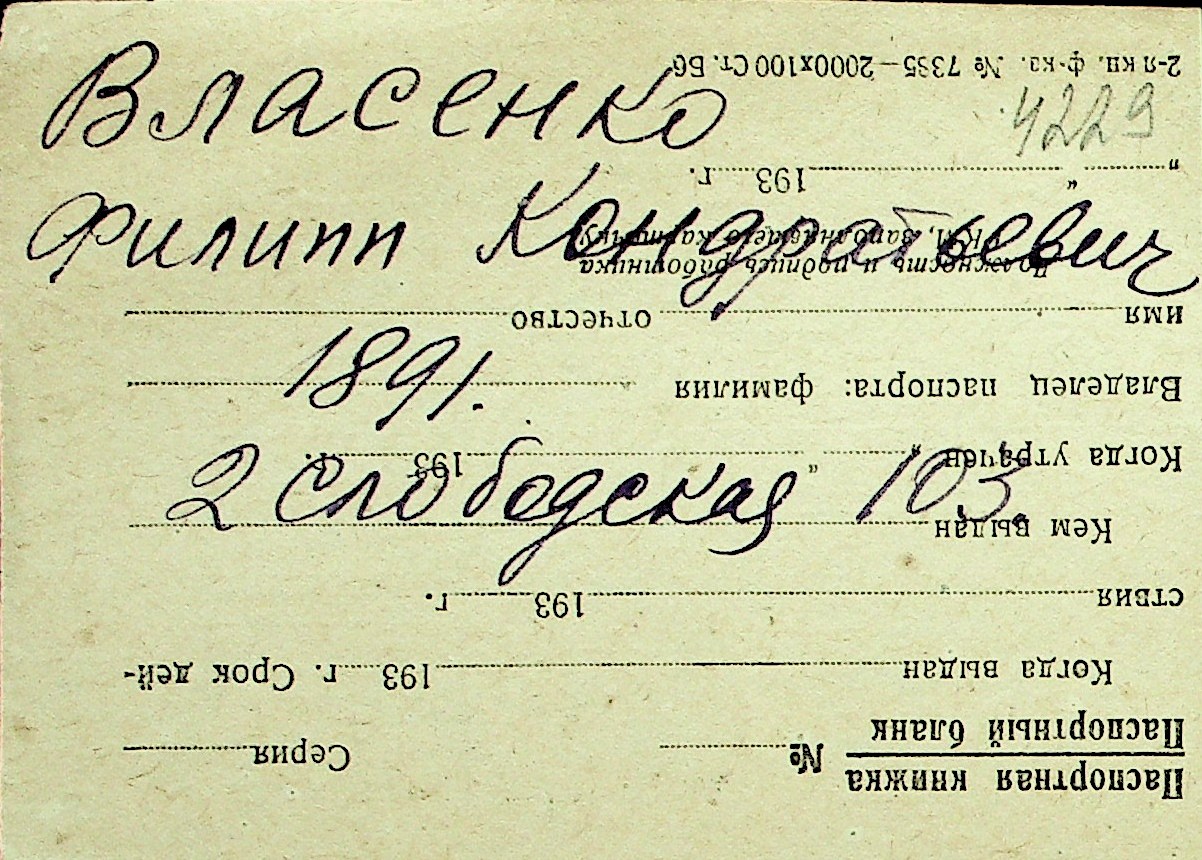 Власенко
4229
Филипп Кондратьевич
1891.
2 Слободская 103.
Паспортная книжка
Паспортный бланк
№ Серия
Когда выдан 193 г. Срок дей-
ствия 193 г.
Кем выдан
Когда утрачен " " 193 г.
Владелец паспорта: фамилия
имя отчество
Должность и подпись работника
К. М, заполнявшего карточку
" " 193 г.
2-я кн. ф-ка. № 7335—2000х100 Ст. Вб